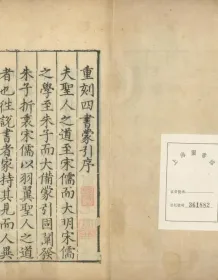 重刻四書蒙引序
夫聖人之道至宋儒而大明宋儒
之學至朱子而大備蒙引固闡發
朱子折衷宋儒以羽翼聖人之道
者也徃說書者家持其見而人異
上海圖書館
361552